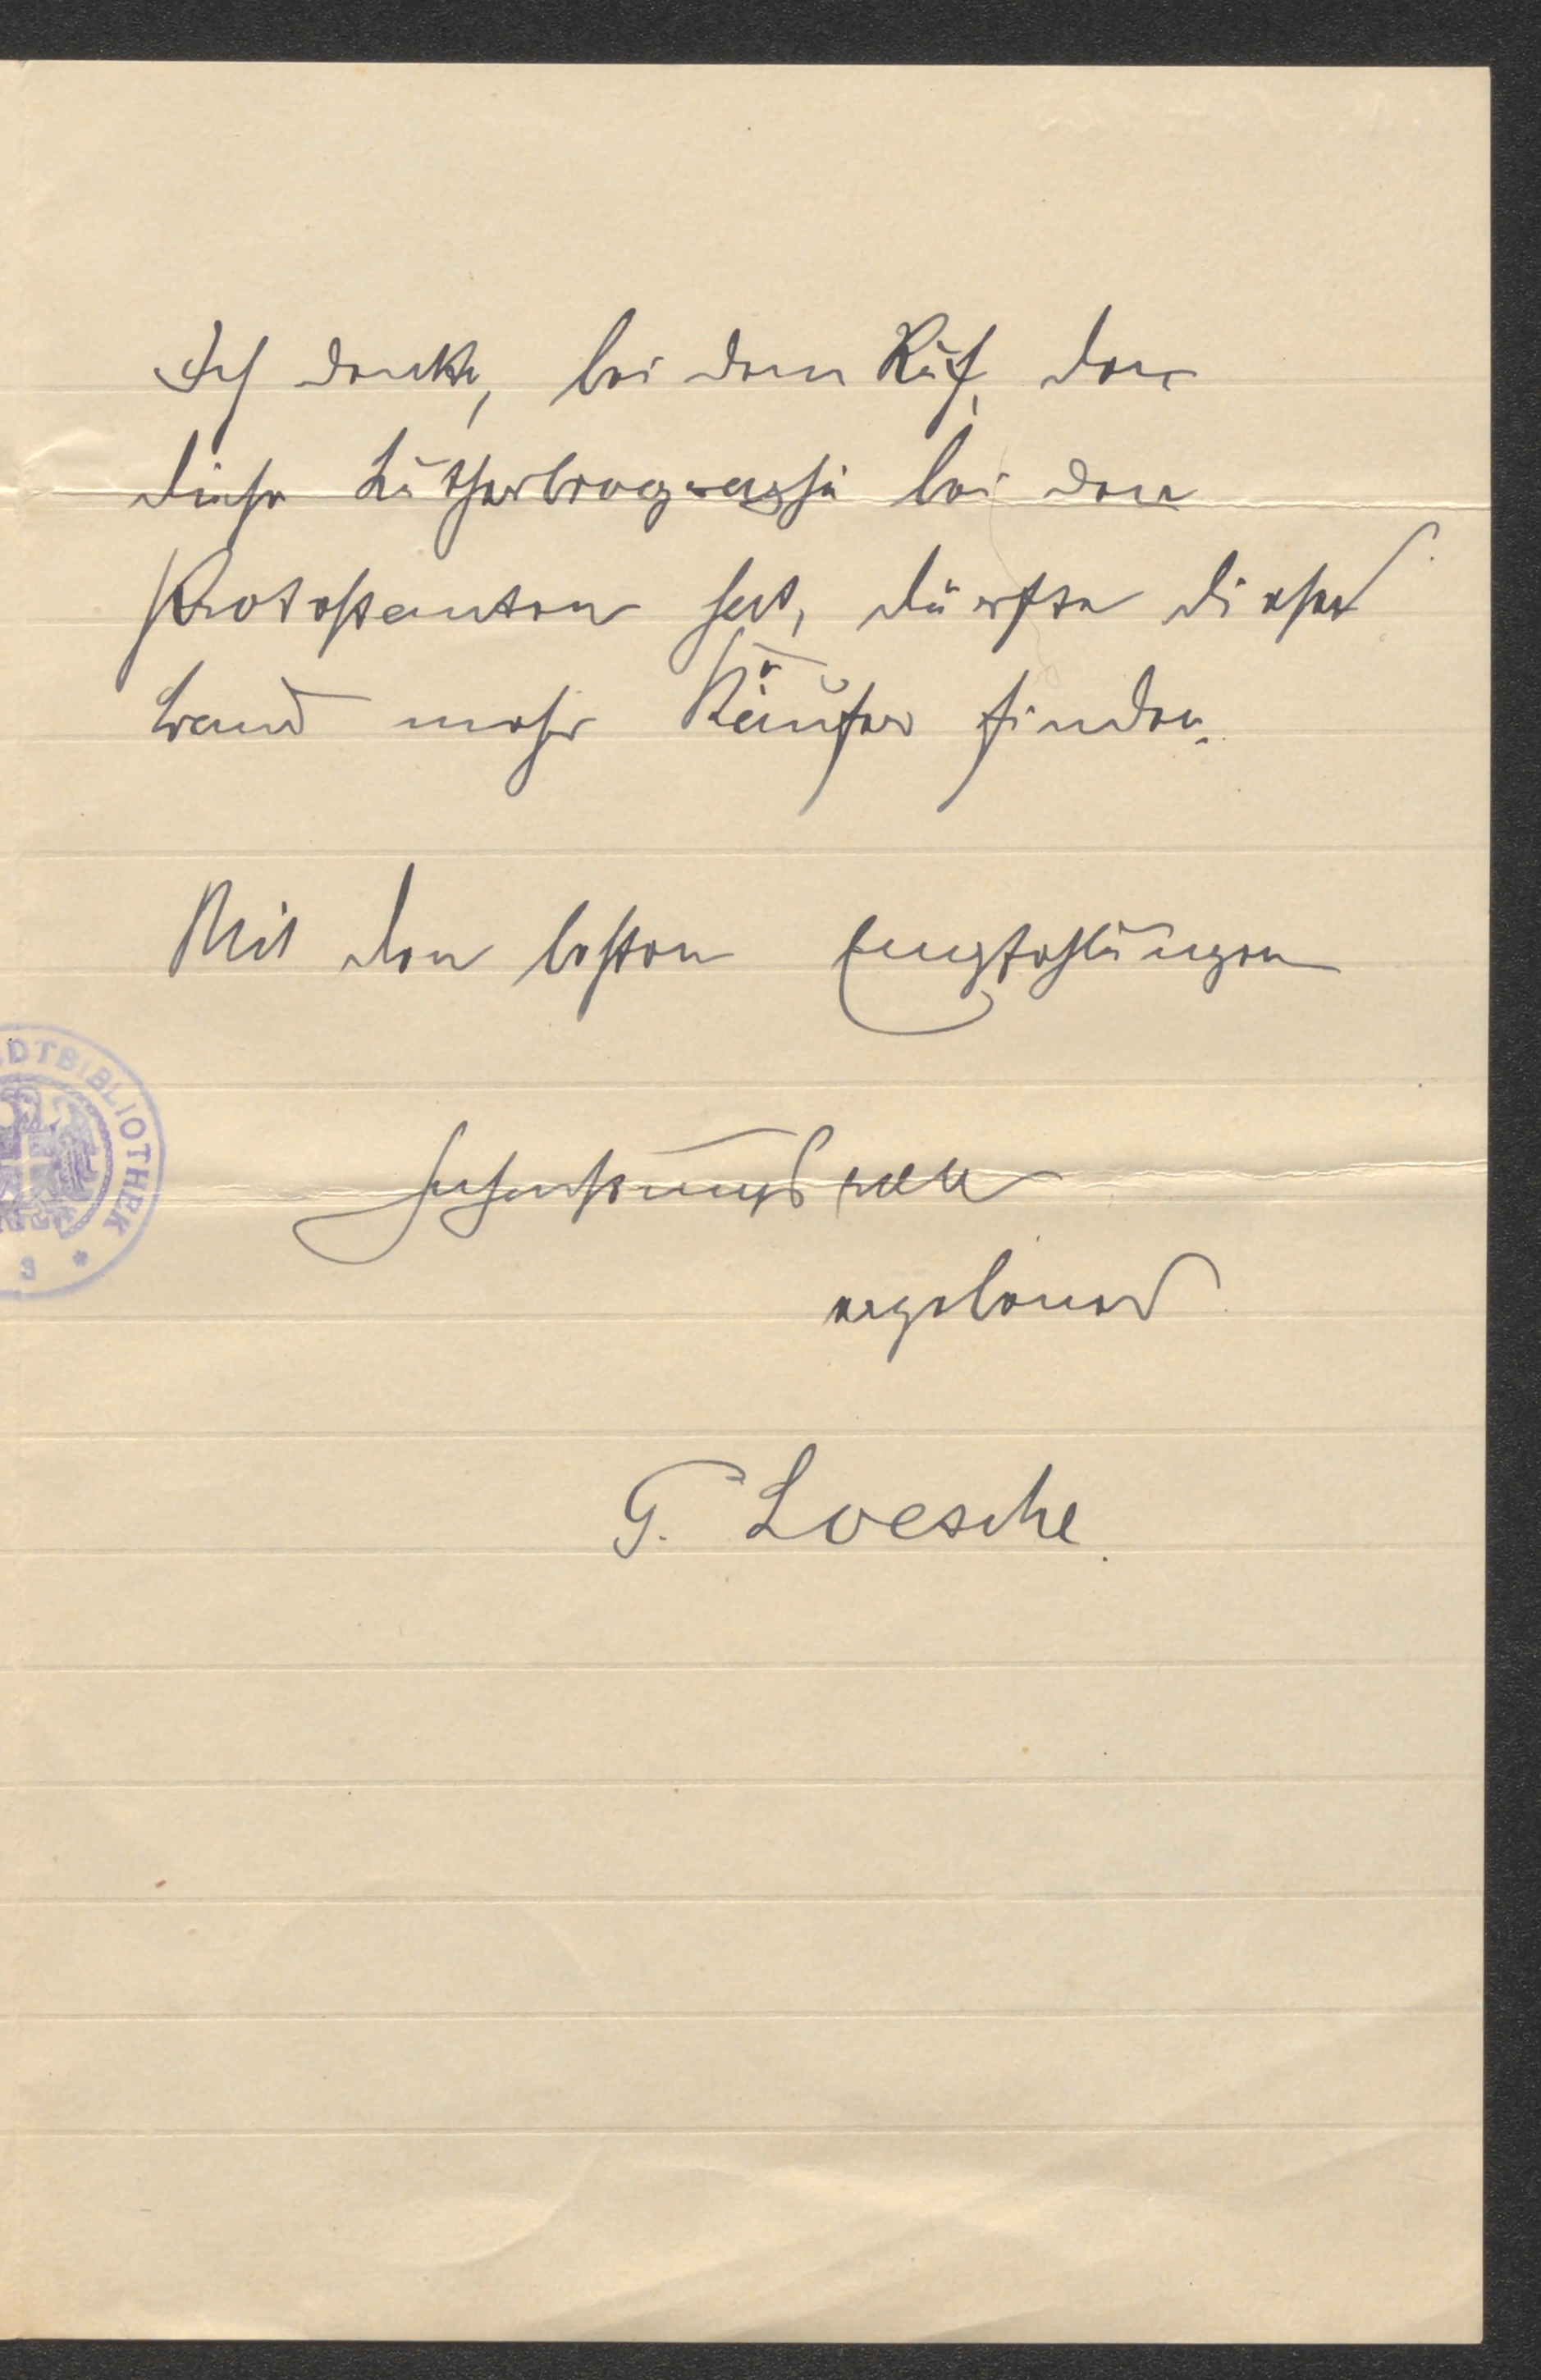 Ich denke, bei dem Ruf, den
diese Lutherbiographie bei den
Protestanten hat, dürfte dieser
Band mehr Käufer finden.
Mit den besten Empfehlungen
hochachtungsvoll
ergebenst
G. Loesche.
DTBIBLIOTHEK